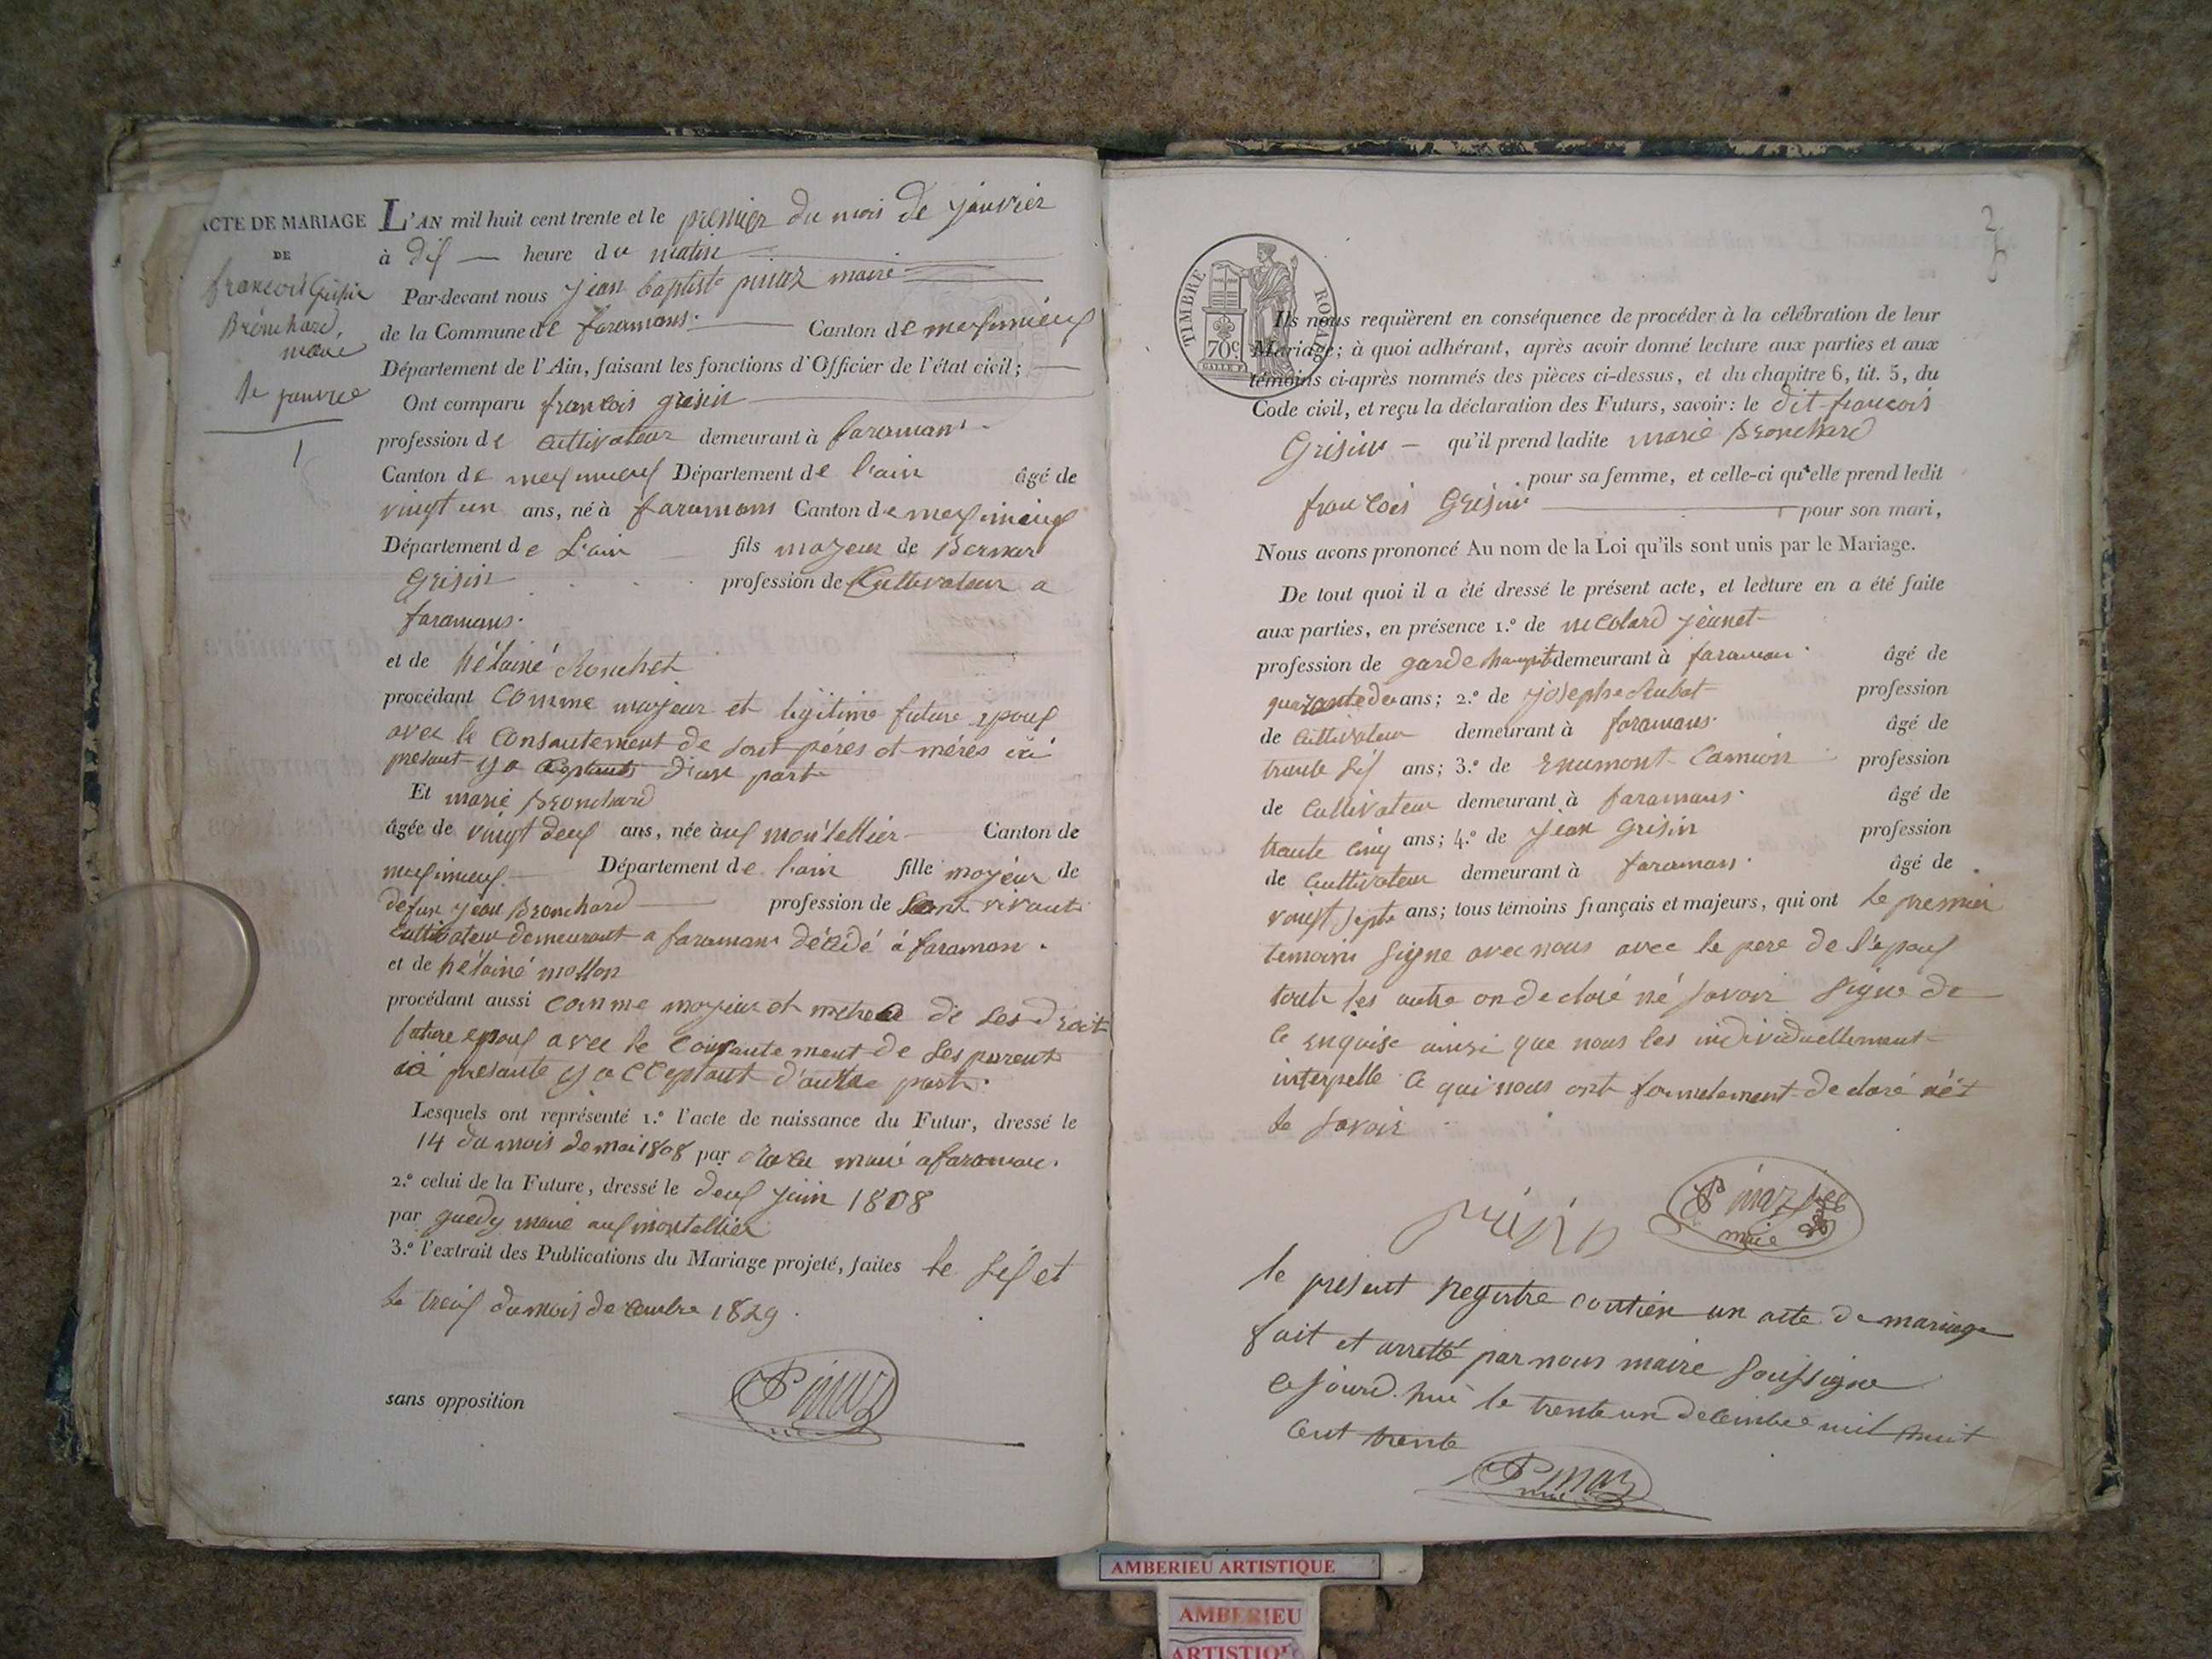 ACTE DE MARIAGE
DE
francois Grisin
Bronchard,
marié
le janvier
1
L'AN mil huit cent trente et le premier du mois de janvier
à dis heure du matin
Par-devant nous jean baptiste pinaz maire
de la Commune de faramans Canton de meximieux
Département de l'Ain, faisant les fonctions d'Officier de l'état civil;
Ont comparu francois grisin
profession de Cultivateur demeurant à faramans
Canton de meximieux Département de l'ain âgé de
vingt un ans, né à faramans Canton de meximieux
Département de L'ain fils majeur de Bernar
Grisin profession de Cultivateur a
faramans.
et de hélainé Ronchet
procédant Comme majeur et légitime future epouf
avec le Consantement de sont péres et méres ici
present y a Ceptants d'une part
Et marie Bronchard
âgée de vingt deuf ans, née à auf montellier Canton de
meximieux Département de l'ain fille majeur de
defun jean Bronchard profession de Sont vivant
Cultivateur demeurant a faramans décédé á faramans.
et de hélainé mollon
procédant aussi Comme majeur et metre de ses droit
future epouf avec le Consantement de ses parent
ici presante y a CCeptant d'autre part.
Lesquels ont représenté 1.º l'acte de naissance du Futur, dressé le
14 du mois de mai 1808 par maire a faramans.
2.º celui de la Future, dressé le deuf juin 1808
par guedy maire auf montellier
3.º l'extrait des Publications du Mariage projeté, faites le sif et
le treif du mois de cembre 1829.
sans opposition
Pinaz
2
TIMBRE ROYAL
70c
Ils nous requièrent en conséquence de procéder à la célébration de leur
Mariage; à quoi adhérant, après avoir donné lecture aux parties et aux
témoins ci-après nommés des pièces ci-dessus, et du chapitre 6, tit. 5, du
Code civil, et reçu la déclaration des Futurs, savoir: le dit francois
Grisin qu'il prend ladite marie Bronchard
pour sa femme, et celle-ci qu'elle prend ledit
francois Grisin pour son mari,
Nous avons prononcé Au nom de la Loi qu'ils sont unis par le Mariage.
De tout quoi il a été dressé le présent acte, et lecture en a été faite
aux parties, en présence 1.º de nicolard jeunet
profession de garde demeurant à faramans âgé de
quarante deu ans; 2.º de josephe profession
de Cultivateur demeurant à faramans. âgé de
trante sif ans; 3.º de Enemont Camion profession
de Cultivateur demeurant à faramans. âgé de
trante cinq ans; 4.º de jean grisin profession
de Cultivateur demeurant à faramans. âgé de
vingt septe ans; tous témoins français et majeurs, qui ont le premier
temoins signe avec nous avec le pere de l'epouf
toute les autre on de claré né savoir signe de
ce enquise ainsi que nous les individuellement
interpelle Ce qui nous ont formelement de claré
le savoir
grisin Pinaz
maire
le present Registre contien un acte de mariage
fait et arretté par nous maire soussigne
Ce jourd hui le trente un decembre mil huit
Cent trente
Pinaz
AMBERIEU ARTISTIQUE
AMBERIEU
ARTISTIQUE